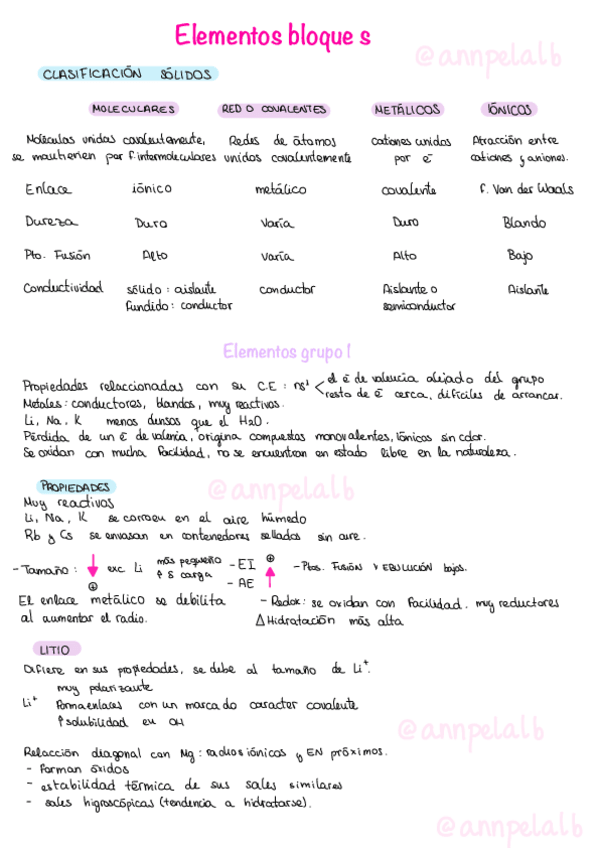 Elementos bloque s
@annpelalb
CLASIFICACIÓN SÓLIDOS
MOLECULARES RED O COVALENTES METÁLICOS IÓNICOS
Moléculas unidas covalentemente, Redes de átomos cationes unidos Atracción entre
se mantienen por f. intermoleculares unidos covalentemente por e⁻ cationes y aniones.
Enlace iónico metálico covalente f. Van der Waals
Dureza Duro varía Duro Blando
Pto. Fusión Alto varía Alto Bajo
Conductividad sólido : aislante conductor Aislante o Aislante
fundido : conductor semiconductor
Elementos grupo 1
Propiedades relaccionadas con su C.E : ns¹ < el e⁻ de valencia alejado del grupo
resto de e⁻ cerca, difíciles de arrancar.
Metales : conductores, blandos, muy reactivos.
Li, Na, K menos densos que el H₂O.
Pérdida de un e⁻ de valencia, origina compuestos monovalentes, iónicos sin color.
Se oxidan con mucha facilidad, no se encuentran en estado libre en la naturaleza.
@annpelalb
PROPIEDADES
Muy reactivos
Li, Na, K se corroen en el aire húmedo
Rb y Cs se envasan en contenedores sellados sin aire.
- Tamaño : ↓ ⊕ exc Li más pequeño ↑ δ carga - EI - AE ⊕ ↑ - Ptos. Fusión y EBULLICIÓN bajos.
El enlace metálico se debilita - Redox : se oxidan con facilidad. muy reductores
al aumentar el radio. Δ Hidratación más alta
LITIO
Difiere en sus propiedades, se debe al tamaño de Li⁺.
muy polarizante
Li⁺ Forma enlaces con un marcado caracter covalente
↑ solubilidad en OH
@annpelalb
Relacción diagonal con Mg : radios iónicos y EN próximos.
- Forman óxidos
- estabilidad térmica de sus sales similares
- sales higroscópicas (tendencia a hidratarse).
@annpelalb